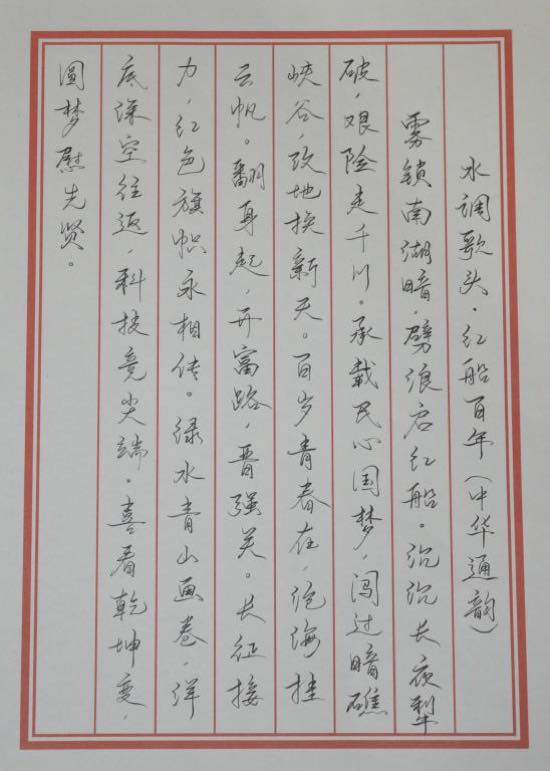 水调歌头·红船百年(中华通韵)
雾锁南湖暗,劈浪启红船。沉沉长夜犁
破,艰险走千川。承载民心国梦,闯过暗礁
峡谷,改地换新天。百岁青春在,沧海挂
云帆。翻身起,开富路,晋强关。长征接
力,红色旗帜永相传。绿水青山画卷,洋
底深空往返,科技竞尖端。喜看乾坤变,
圆梦慰先贤。